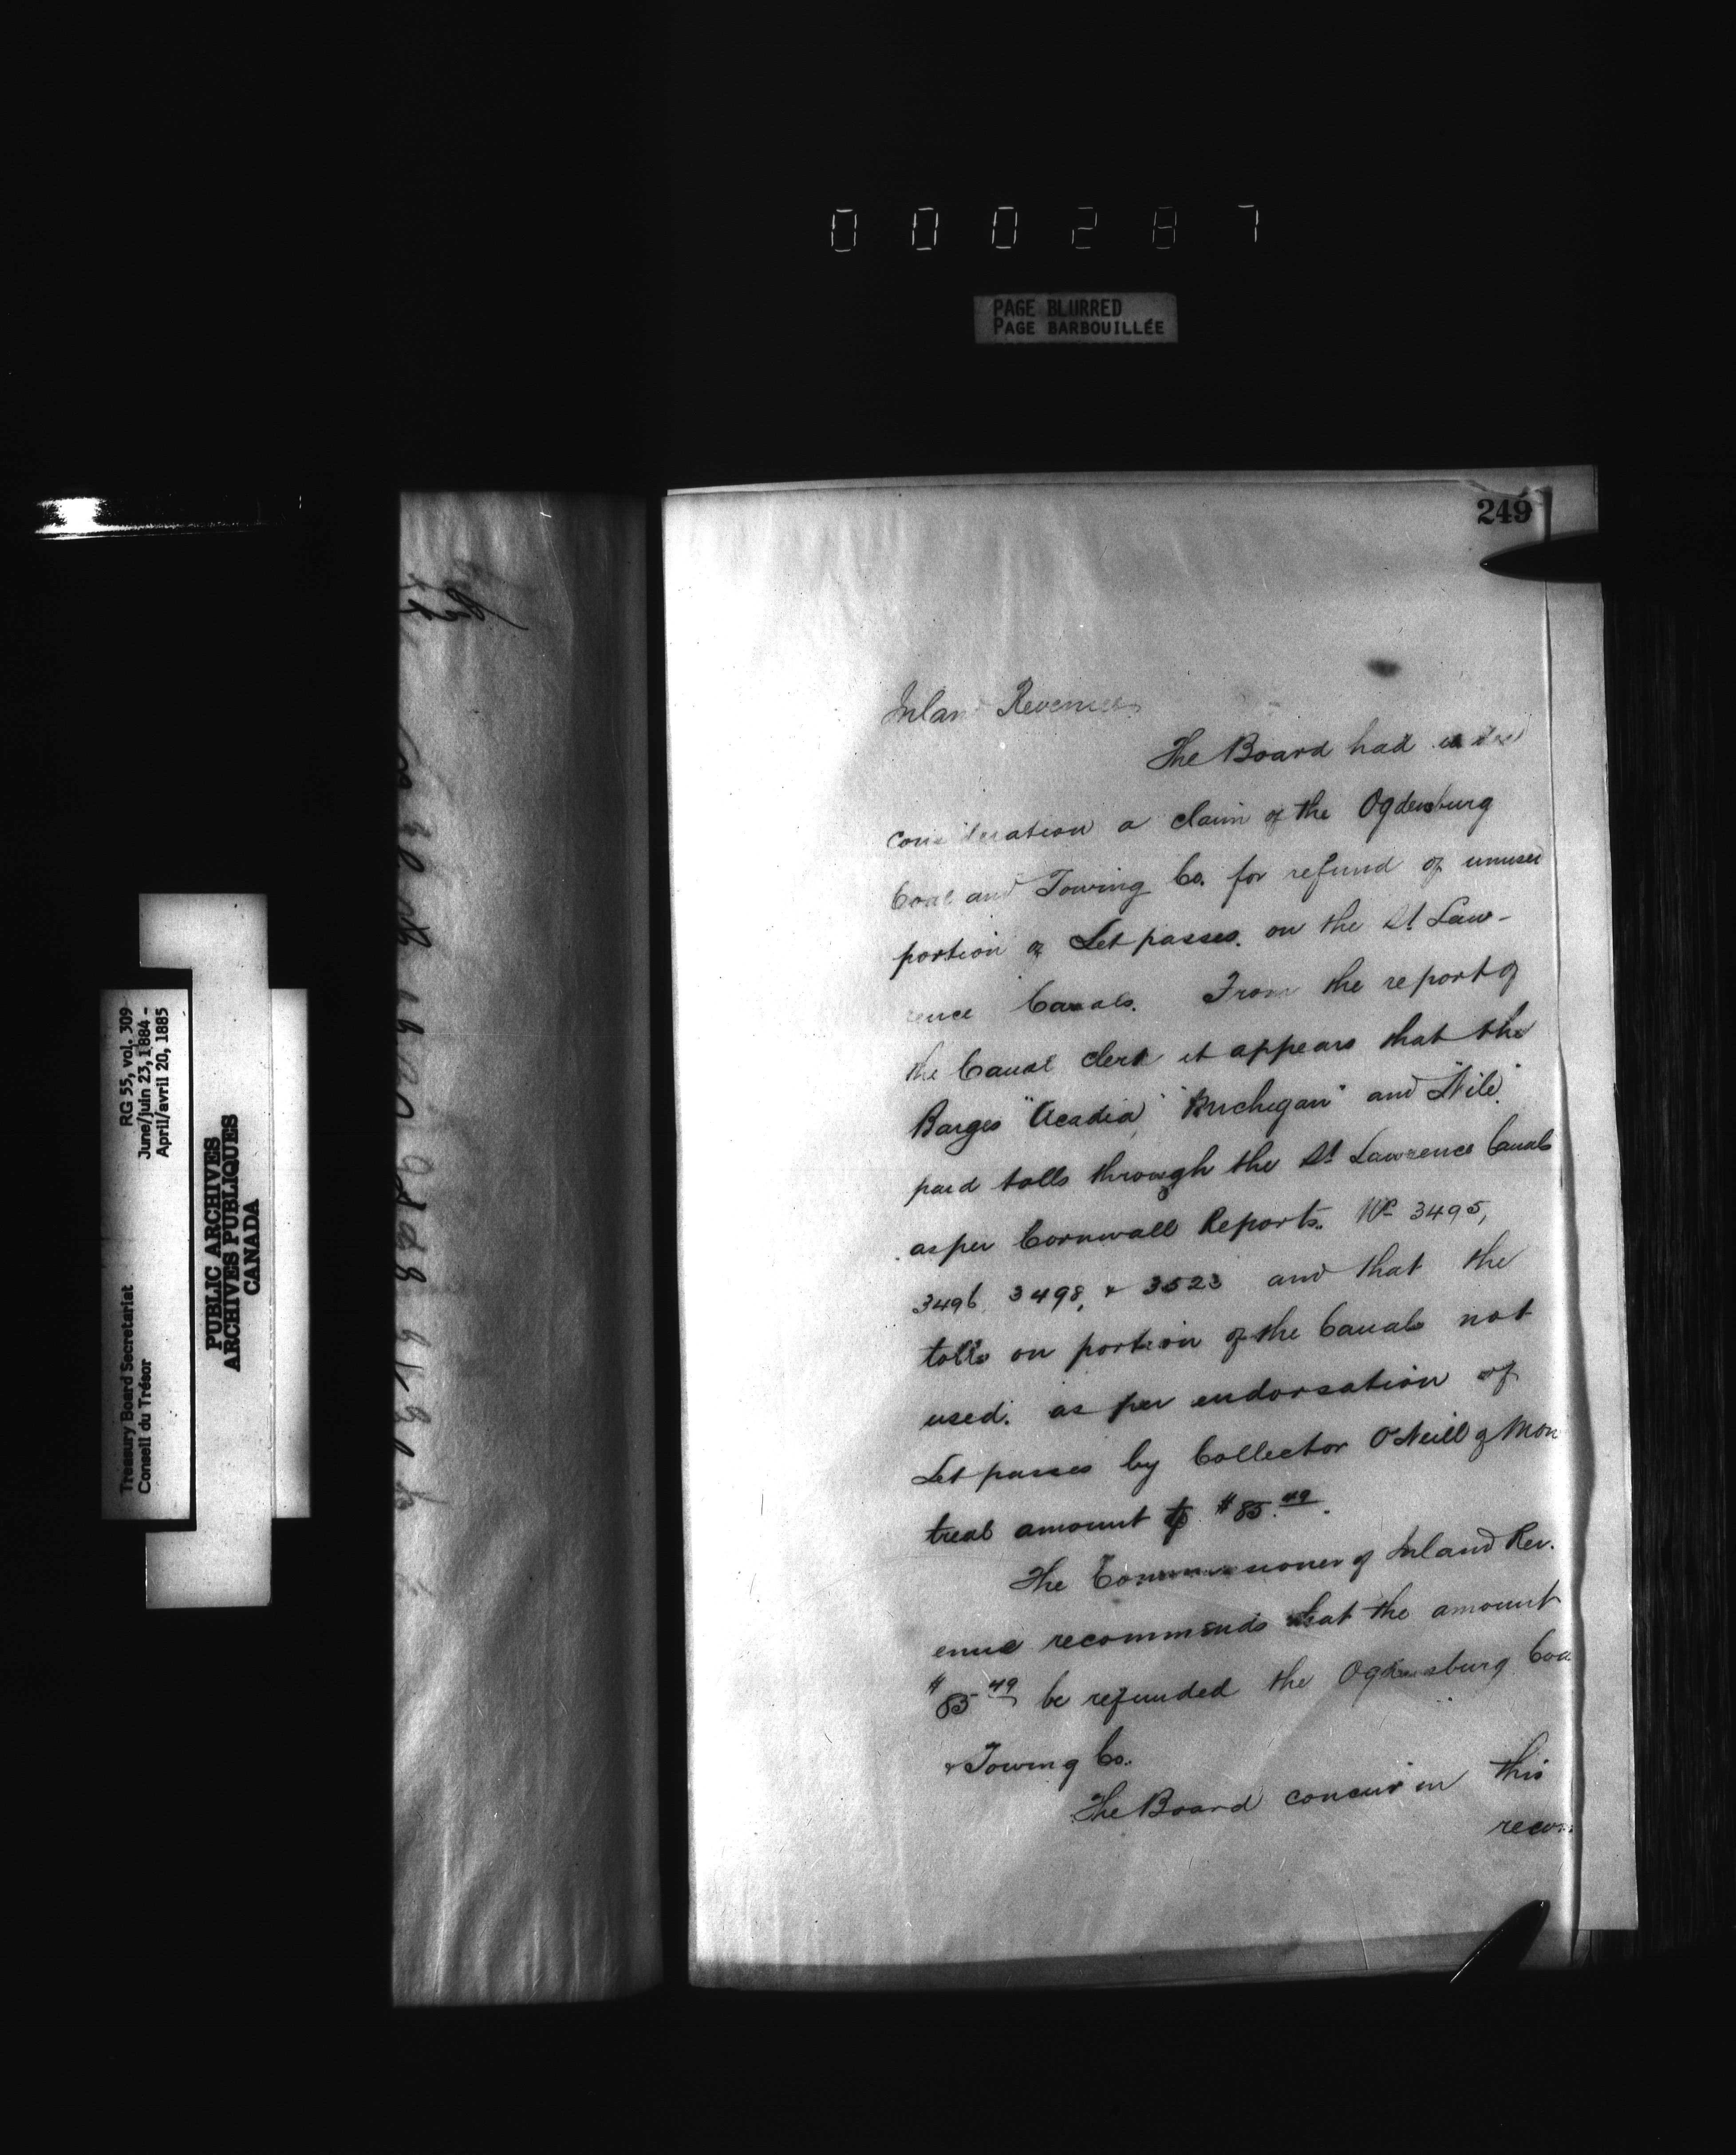 000287
PAGE BLURRED
PAGE BARBOUILLÉE
RG 55, vol. 309
June/juin 23, 1884 -
April/avril 20, 1885
Treasury Board Secretariat
Conseil du Trésor
PUBLIC ARCHIVES
ARCHIVES PUBLIQUES
CANADA
249
Inland Revenue
The Board had under
consideration a claim of the Ogdensburg
Coal and Towing Co. for refund of unused
portion of Let passes. on the St Law-
rence Canals. From the report of
the Canal Clerk it appears that the
Barges "Acadia," and "Nile"
paid tolls through the St Lawrence Canals
as per Cornwall Reports. No 3495,
3496, 3498, & 3523 and that the
tolls on portion of the Canals not
used. as per endorsation of
Let passes by Collector O'Neill of Mon
treal amount to $85.49.
The Commissioner of Inland Rev.
enue recommends that the amount
$85 49 be refunded the Ogdensburg Coa
& Towing Co.
The Board concur in this
recom